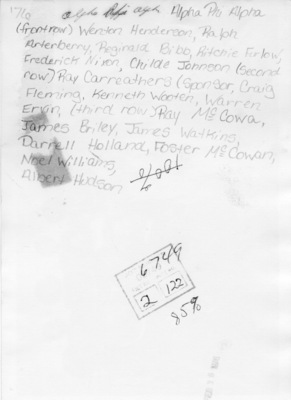 1976 alpha Phi alph Alpha Phi Alpha
(front row) Wenton Henderson, Ralph
Arterberry, Reginald Bibb, Ritchie Farlow,
Frederick Nixon, Childe Johnson (second
row) Ray Carreathers (Sponsor, Craig
Fleming, Kenneth Wooten, Warren
Ervin, (third row) Ray McCowa,
James Briley, James Watkins,
Darrell Holland, Foster McCowan,
Noel Williams,
Albert Hudson
6749
2 122
85%